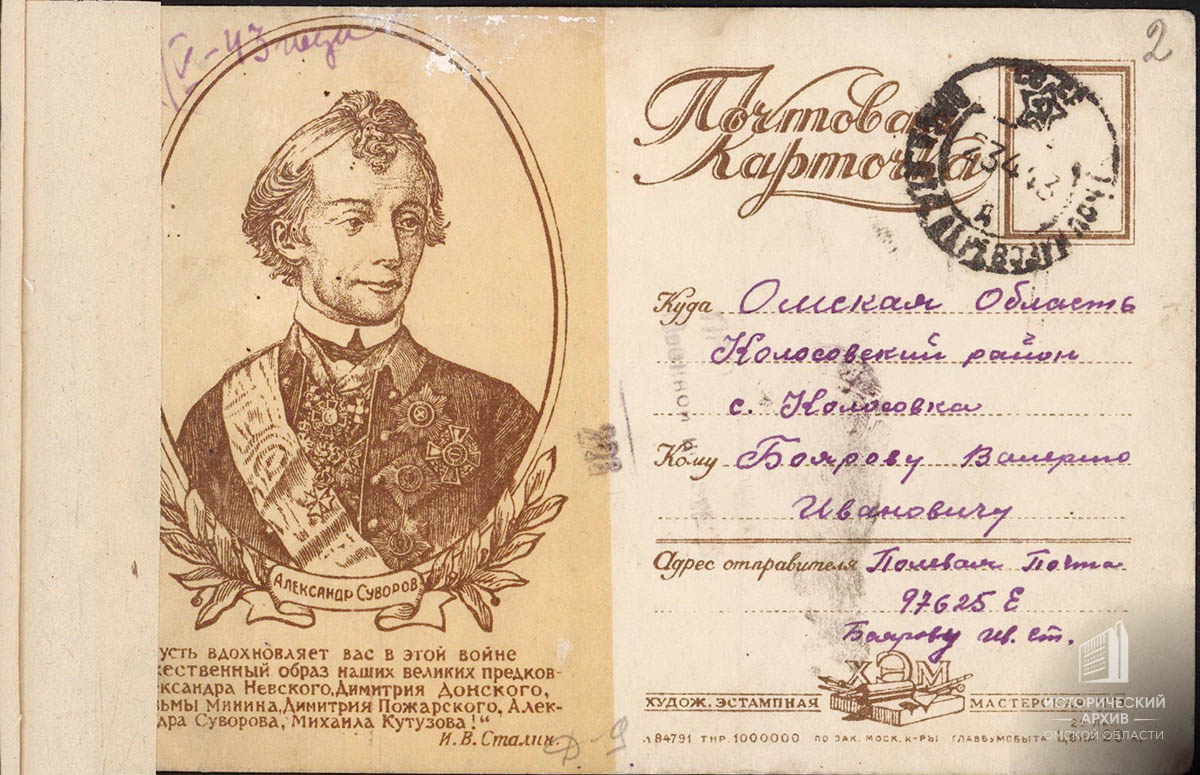 V-43 года
2
Почтовая
Карточка
Куда Омская Область
Колосовский район
с. Колосовка
Кому Боярову Валерию
Ивановичу
Адрес отправителя Полевая Почта
97625 Е
Боярову Ив. Ст.
ХЭМ
ХУДОЖ. ЭСТАМПНАЯ МАСТЕРСКАЯ
Л 84791 ТИР. 1000000 ПО ЗАК. МОСК. К-РЫ ГЛАВБУМСБЫТА ЦЕНА
АЛЕКСАНДР СУВОРОВ
усть вдохновляет вас в этой войне
жественный образ наших великих предков-
ександра Невского, Димитрия Донского,
зьмы Минина, Димитрия Пожарского, Алек-
дра Суворова, Михаила Кутузова!"
И. В. Сталин.
Д-9
ИСТОРИЧЕСКИЙ
АРХИВ
ОМСКОЙ ОБЛАСТИ